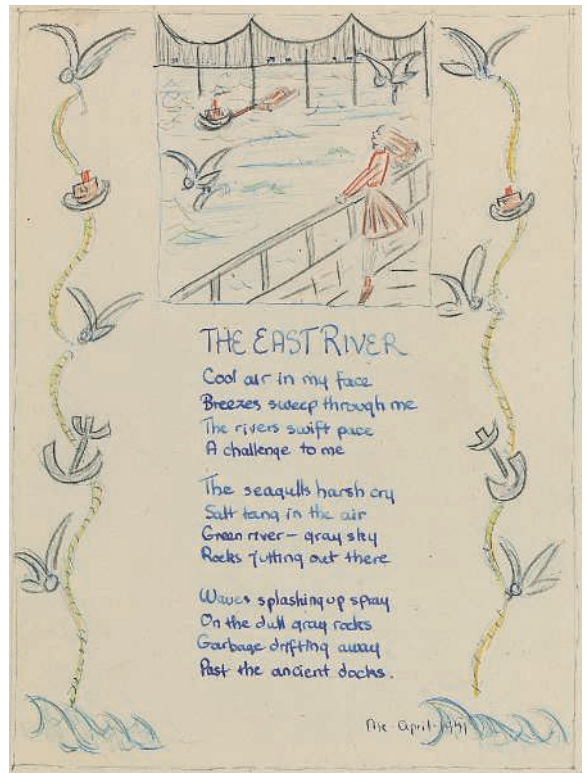 THE EAST RIVER
Cool air in my face
Breezes sweep through me
The rivers swift pace
A challenge to me
The seagulls harsh cry
Salt tang in the air
Green river – gray sky
Rocks jutting out there
Waves splashing up spray
On the dull gray rocks
Garbage drifting away
Past the ancient docks.
April